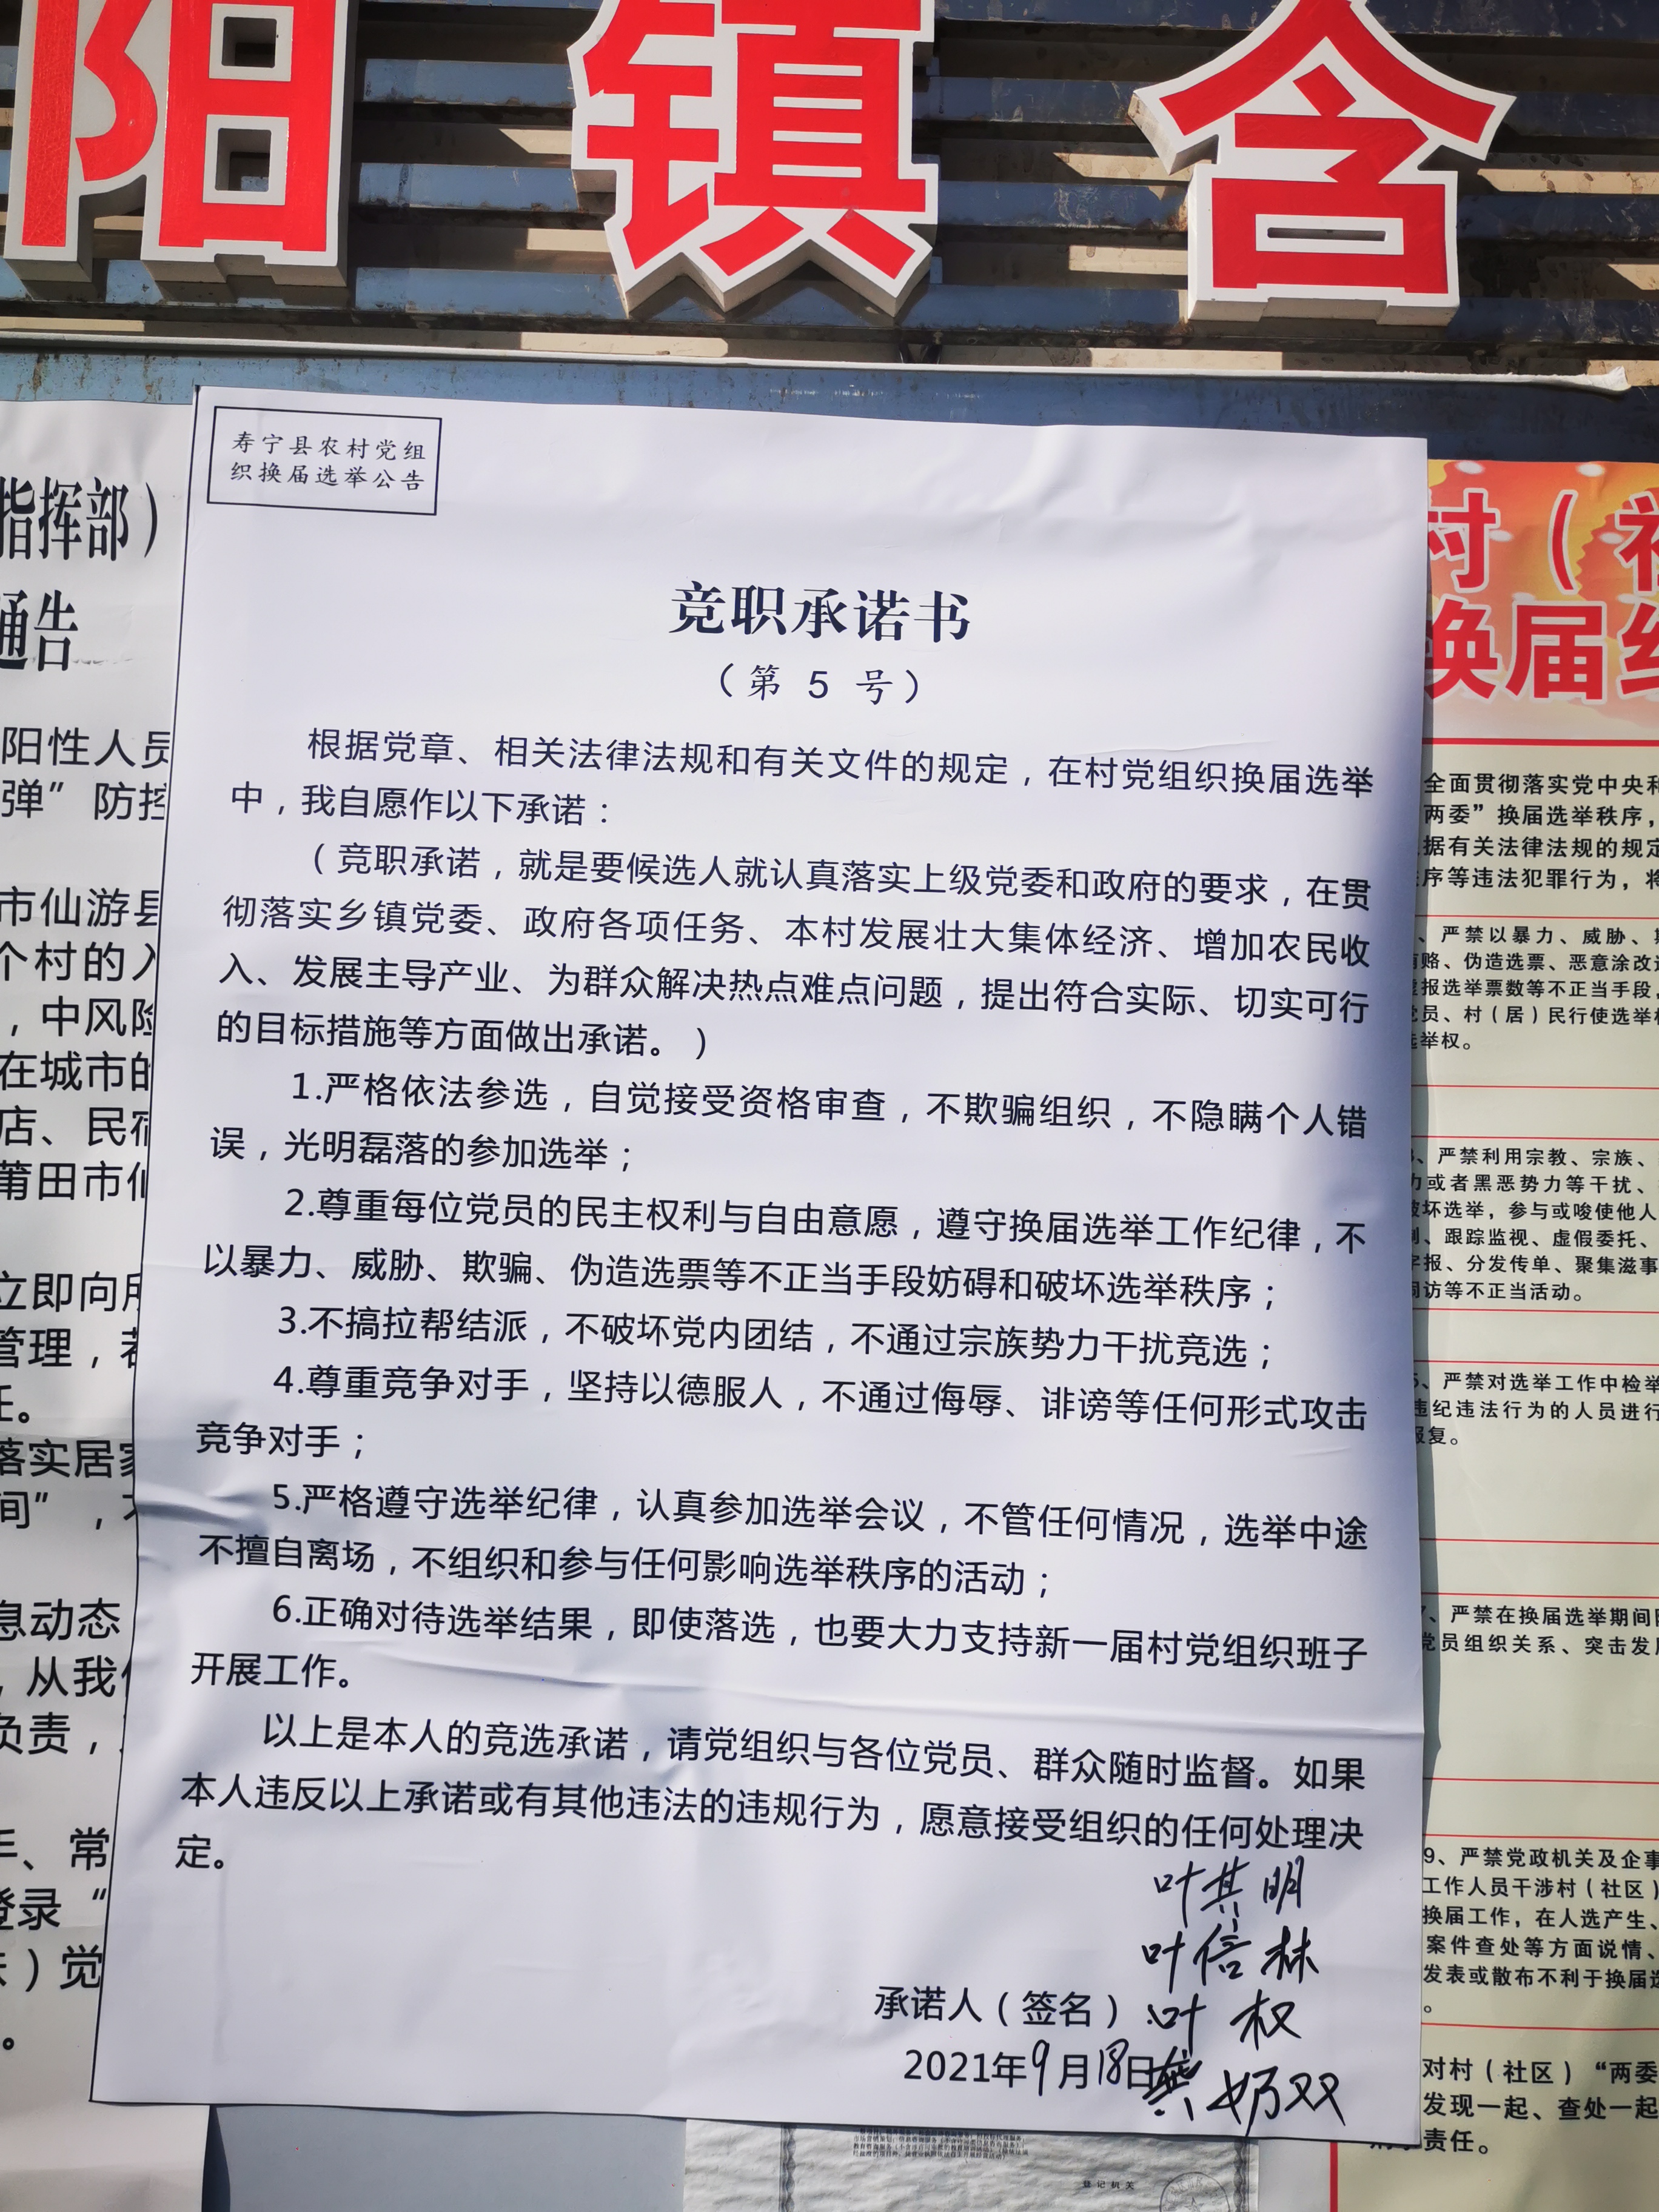 阳镇含
寿宁县农村党组
织换届选举公告
竞职承诺书
（第 5 号）
根据党章、相关法律法规和有关文件的规定，在村党组织换届选举
中，我自愿作以下承诺：
（竞职承诺，就是要候选人就认真落实上级党委和政府的要求，在贯
彻落实乡镇党委、政府各项任务、本村发展壮大集体经济、增加农民收
入、发展主导产业、为群众解决热点难点问题，提出符合实际、切实可行
的目标措施等方面做出承诺。）
1.严格依法参选，自觉接受资格审查，不欺骗组织，不隐瞒个人错
误，光明磊落的参加选举；
2.尊重每位党员的民主权利与自由意愿，遵守换届选举工作纪律，不
以暴力、威胁、欺骗、伪造选票等不正当手段妨碍和破坏选举秩序；
3.不搞拉帮结派，不破坏党内团结，不通过宗族势力干扰竞选；
4.尊重竞争对手，坚持以德服人，不通过侮辱、诽谤等任何形式攻击
竞争对手；
5.严格遵守选举纪律，认真参加选举会议，不管任何情况，选举中途
不擅自离场，不组织和参与任何影响选举秩序的活动；
6.正确对待选举结果，即使落选，也要大力支持新一届村党组织班子
开展工作。
以上是本人的竞选承诺，请党组织与各位党员、群众随时监督。如果
本人违反以上承诺或有其他违法的违规行为，愿意接受组织的任何处理决
定。
叶其明
叶信林
承诺人（签名）：叶权
2021年9月18日
奶双
指挥部）
通告
阳性人员
弹”防控
市仙游县
个村的入
，中风险
在城市的
店、民宿
莆田市仙
立即向所
管理，若
任。
落实居家
间”，不
息动态
，从我
负责，
、常
登录“
）党
。
村（社
换届纪
全面贯彻落实党中央和
两委”换届选举秩序，
据有关法律法规的规定
序等违法犯罪行为，将
、严禁以暴力、威胁、欺
贿赂、伪造选票、恶意涂改选
虚报选举票数等不正当手段，
党员、村（居）民行使选举权
选举权。
、严禁利用宗教、宗族、
力或者黑恶势力等干扰、
破坏选举，参与或唆使他人
、跟踪监视、虚假委托、
字报、分发传单、聚集滋事
访等不正当活动。
5、严禁对选举工作中检举
违纪违法行为的人员进行
报复。
7、严禁在换届选举期间
党员组织关系、突击发展
9、严禁党政机关及企事
工作人员干涉村（社区）
换届工作，在人选产生、
案件查处等方面说情、
发表或散布不利于换届选
。
对村（社区）“两委
发现一起、查处一起
责任。
登记机关